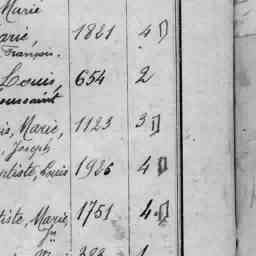 Marie
arie, 1821 4
François.
Louis, 654 2
oussaint
is, Marie, 1123 3
Joseph
ptiste, Louis 1926 4
tiste, Marie, 1751 4